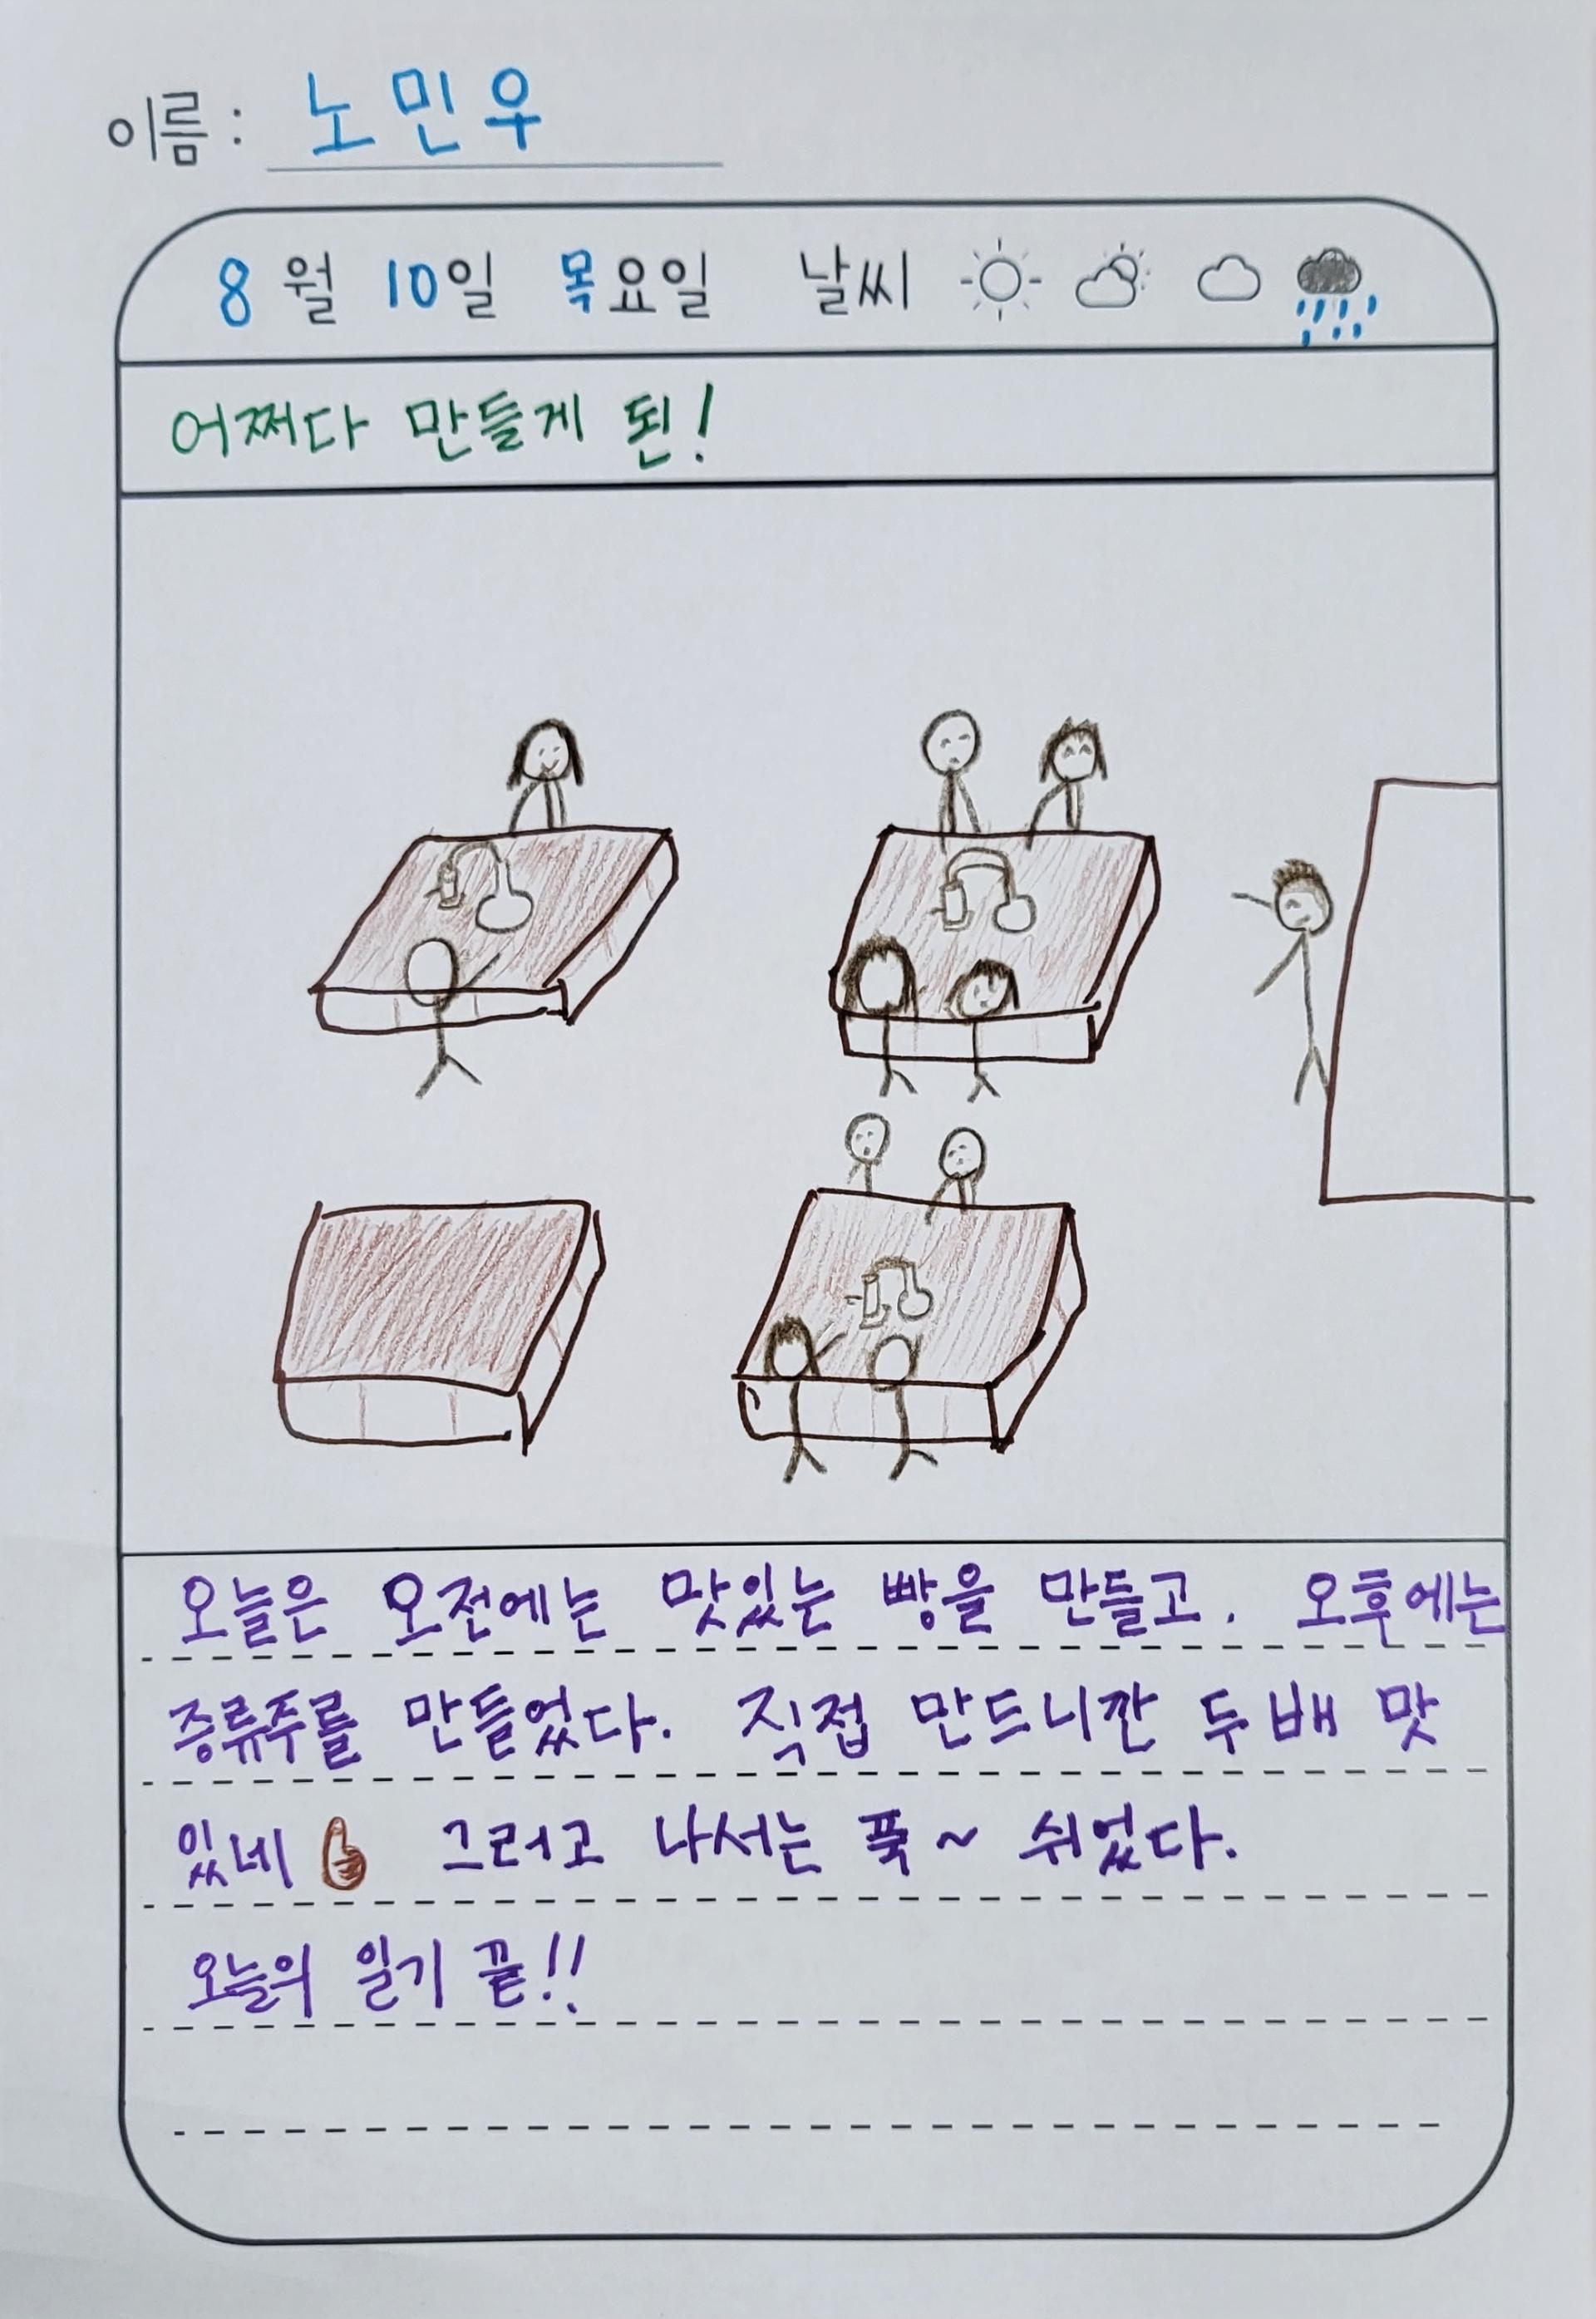 이름: 노민우
8월 10일 목요일 날씨
어쩌다 만들게 된!
오늘은 오전에는 맛있는 빵을 만들고. 오후에는
증류주를 만들었다. 직접 만드니깐 두배 맛
있네 그러고 나서는 푹~ 쉬었다.
오늘의 일기 끝!!